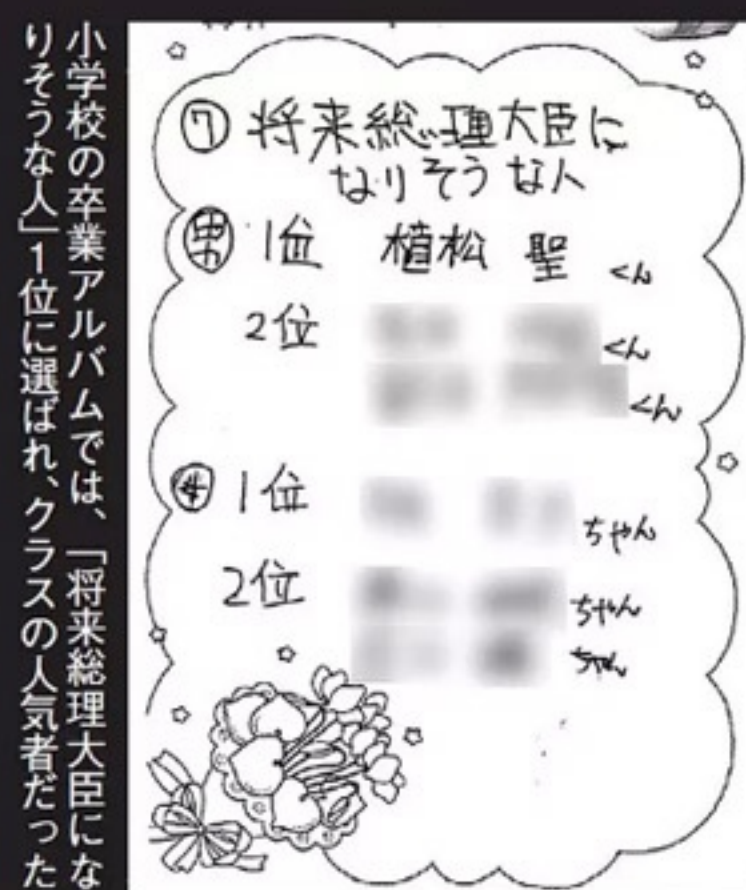 小学校の卒業アルバムでは、「将来総理大臣にな
りそうな人」1位に選ばれ、クラスの人気者だった
⑦ 将来総理大臣に
なりそうな人
男 1位 植松 聖 くん
2位 くん
くん
女 1位 ちゃん
2位 ちゃん
ちゃん